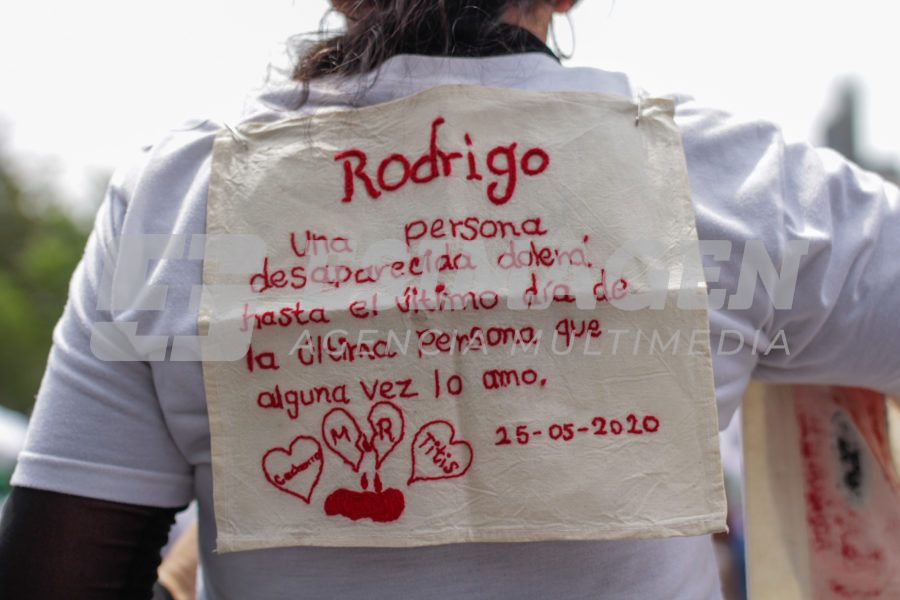 Rodrigo
Una persona
desaparecida dolerá
hasta el último día de
la última persona que
alguna vez lo amo.
25-05-2020
M R
Cachorro
Titis
AGENCIA MULTIMEDIA